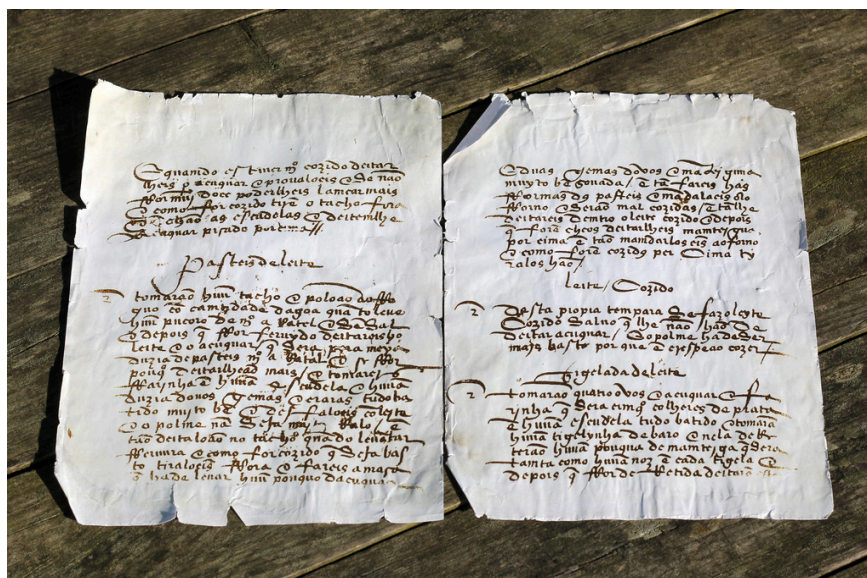 E quando estiuer mº cozido deitar
lheis p açuquar e proualoeis e se não
ffor muy doce poderlheis lamcar mais
e como ffor cozido tirē o tacho fora
no chão as escudelas e deitemlhe
açuquar pisado por cima //
Pasteis de leite
tomarão huū tacho e poloão no ffo
guo cō camtidade dagoa que leue
huū pucoro de mº aRatel e de sal
e depois q̄ ffor feruydo deitarão o
leite e o açuquar q̄ sera pera meya
duzia de pasteis mº aRatal e se ffor
pouquo deitarlheão mais / e tomareis
ffarynha ē huūa escudela e huūa
duzia douos gemas e craras tudo ba
tido muyto bē e desfaloeis co leite
e o polme não seja muyto Ralo / e
ētão deitaloão no tacho quādo leuātar
ffervura e como for cozido q̄ seja bas
to tiraloeis ffora e fareis a masa
q̄ hade leuar huū pouquo daçuquar
E duas gemas dovos e māteyguа
muyto bē souada / e ētā fareis has
fformas dos pasteis e mādalaseis ao
fforno e serão mal cozidos / e ētā lhe
deitareis demtro o leite cozido e depois
q̄ forē cheos deitarlheis mamteigua
por cima e ētāo mandarloseis ao forno
e como forē cozidos per Cima ty
ralos hão /
leite / Cozido
Desta propia tempara se faz o leyte
Cozido saluo q̄ lhe não hão de
deitar açuquar / e o polme ha de ser
mais basto por que ē o espeto cozer
Tigelada de leite
tomarão quatro ovos e açuquar e fa
rynha q̄ sera cimquo colheres de prata
ē huūa escudela tudo batido e tomarā
huūa tigelynha de baro e nela deRe
terāo huūa pouqua de mamteiga q̄ sera
tamta como huūa noz ē cada tigela e
depois q̄ ffor deRetida deitarão